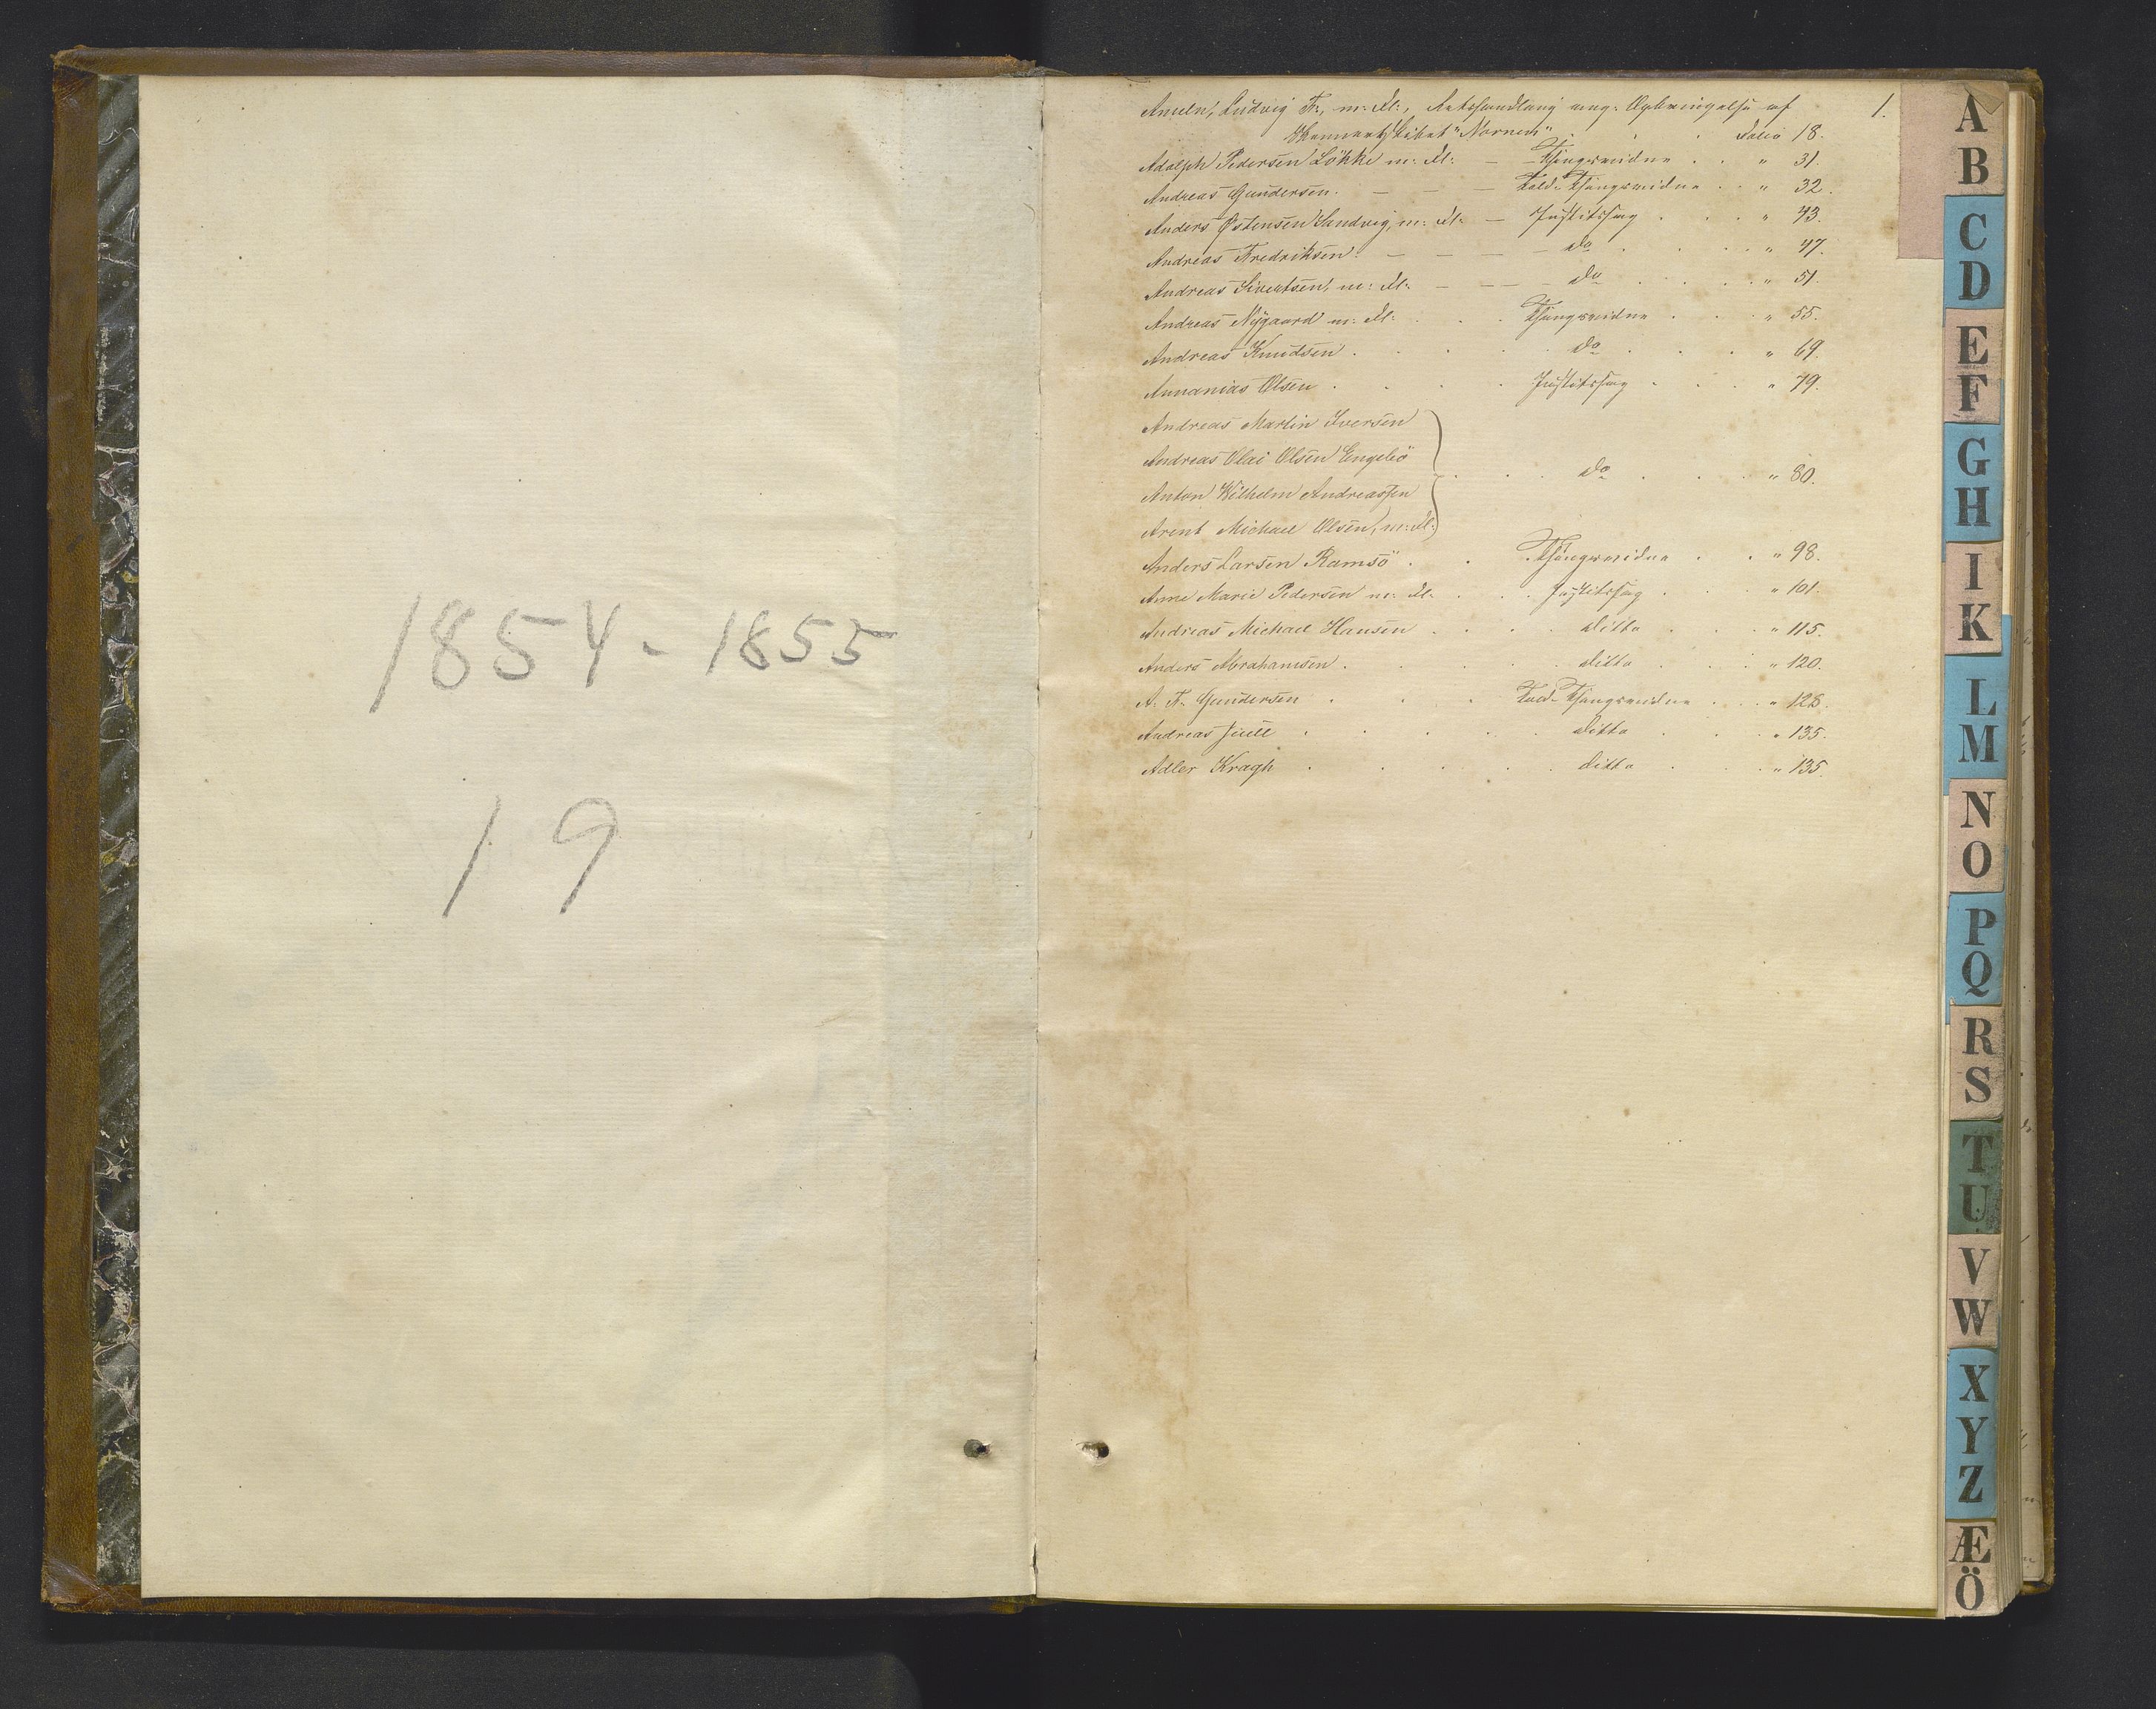 1854-1855
19
1.
Ameln, Ludvig Fr., m: Fl:, Retshandling ang: Opbringelse af
"Nornen" . . . Folio 18.
Adolph Pedersen Løkke m: Fl: — Thingsvidne . . " 31.
Andreas Gundersen. — — — Told-Thingsvidne . . " 32.
Anders Østensen Sandvig, m: Fl: — Justitssag . . . " 43.
Andreas Fredriksen. — — — — do . . . . " 47.
Andreas Sivertsen, m: Fl: — — — do . . . . " 51.
Andreas Nygaard m: Fl: . . . Thingsvidne . . . " 55.
Andreas Knudsen . . . . . do . . . . " 69.
Annanias Olsen . . . . . Justitssag . . . " 79.
Andreas Martin Iversen
Andreas Olai Olsen Engelsö
Anton Wilhelm Andreassen . . . do . . . " 80.
Arent Michael Olsen, m: Fl:
Anders Larsen Ramsö . . . Thingsvidne . . " 98.
Anne Marie Pedersen m: Fl: . . . Justitssag . . . " 101.
Andreas Michael Hansen . . . . ditto . . . " 115.
Anders Abrahamsen . . . . . ditto . . . " 120.
A. F. Gundersen . . . Told-Thingsvidne . . . " 128.
Andreas Juell . . . . . ditto . . . " 135.
Adler Kragh . . . . . ditto . . . " 135.
A
B
C
D
E
F
G
H
I
K
L
M
N
O
P
Q
R
S
T
U
V
W
X
Y
Z
Æ
Ö